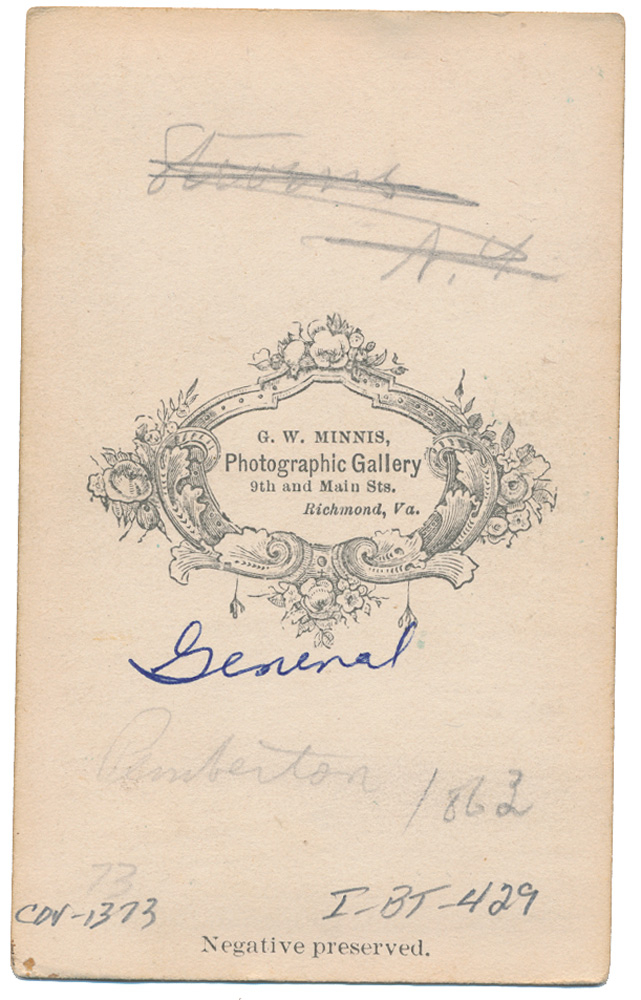 Stevens
N.Y
G. W. MINNIS,
Photographic Gallery
9th and Main Sts.
Richmond, Va.
General
Pemberton 1863
73
CDV-1373
I-BT-429
Negative preserved.